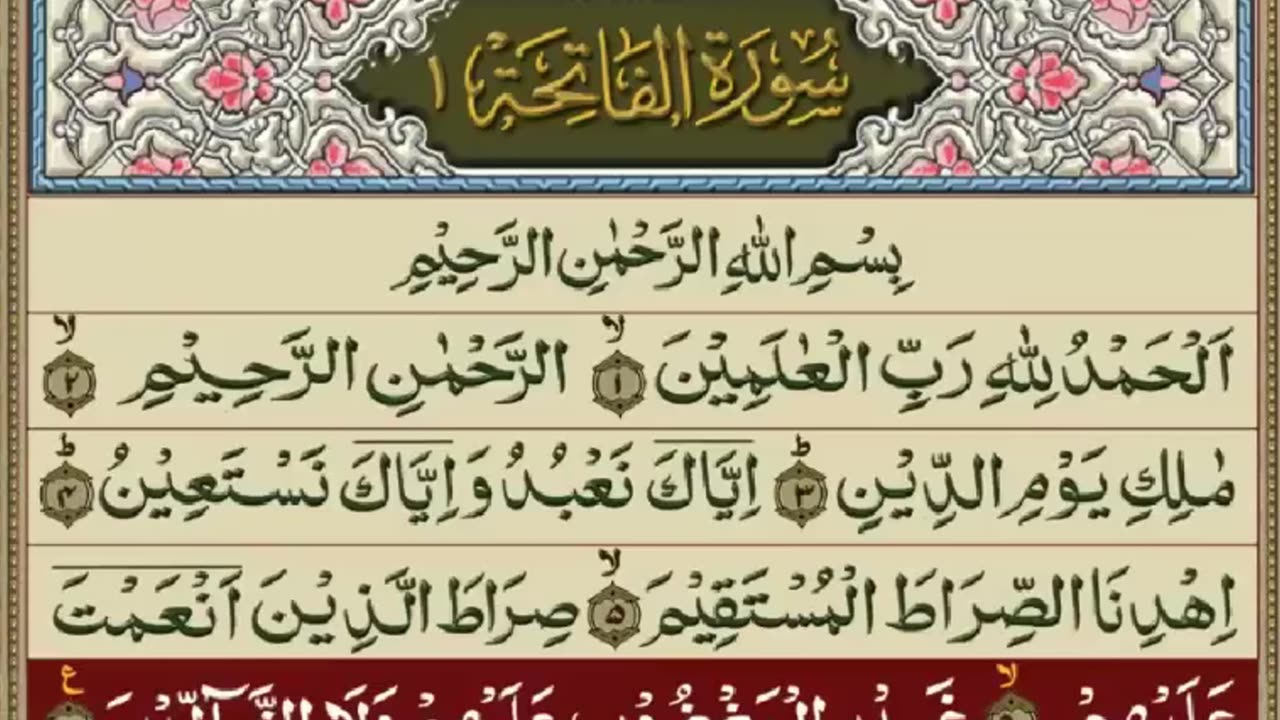 سُوْرَةُ الْفَاتِحَةِ ١
بِسْمِ اللهِ الرَّحْمٰنِ الرَّحِيْمِ
اَلْحَمْدُ لِلهِ رَبِّ الْعٰلَمِيْنَ ۙ﴿١﴾ الرَّحْمٰنِ الرَّحِيْمِ ۙ﴿٢﴾
مٰلِكِ يَوْمِ الدِّيْنِ ؕ﴿٣﴾ اِيَّاكَ نَعْبُدُ وَاِيَّاكَ نَسْتَعِيْنُ ؕ﴿٤﴾
اِهْدِنَا الصِّرَاطَ الْمُسْتَقِيْمَ ۙ﴿٥﴾ صِرَاطَ الَّذِيْنَ اَنْعَمْتَ
عَلَيْهِمْ ۙ غَيْرِ الْمَغْضُوْبِ عَلَيْهِمْ وَلَا الضَّآلِّيْنَ ع